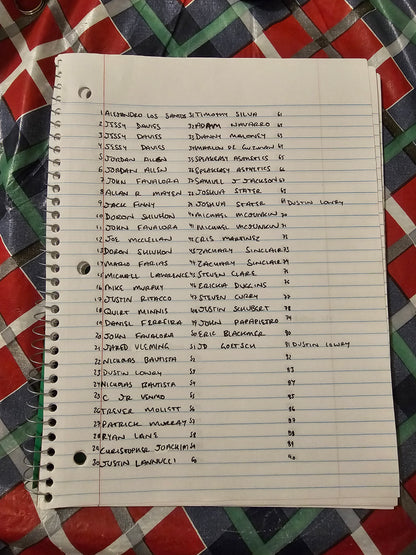 1 ALESSANDRO LOS SANTOS 31 TIMOTHY SILVA 61
2 JESSY DAVIES 32 ADAM NAVARRO 62
3 JESSY DAVIES 33 DANNY MALONEY 63
4 JESSY DAVIES 34 MARLON DE GUZMAN 64
5 JORDAN ALLEN 35 SPEAKEASY ASTHETICS 65
6 JORDAN ALLEN 36 SPEAKEASY ASTHETICS 66
7 JOHN FAVALORA 37 SAMUEL J JACKSON 67
8 ALLAN R MAYEN 38 JOSHUA STATER 68
9 JACK FINNY 39 JOSHUA STATER 69 DUSTIN LOWRY
10 DORON SHUHON 40 MICHAEL MCCUNKIN 70
11 JOHN FAVALORA 41 MICHAEL MCCUNKIN 71
12 JOE MCCLELLAN 42 CRIS MARTINEZ 72
13 DORON SHUHON 43 ZACHARY SINCLAIR 73
14 MARIO FARIAS 44 ZACHARY SINCLAIR 74
15 MICHAEL LAWRENCE 45 STEVEN CLARE 75
16 MIKE MURPHY 46 ERICKA DUGGINS 76
17 JUSTIN RITACCO 47 STEVEN CURRY 77
18 QUIRT MINNIS 48 JUSTIN SCHUBERT 78
19 DANIEL FERREIRA 49 JOHN PAPAPIETRO 79
20 JOHN FAVALORA 50 ERIC BLACKMER 80
21 JARED VLEMING 51 JD GOETSCH 81 DUSTIN LOWRY
22 NICKOLAS BAUTISTA 52 82
23 DUSTIN LOWRY 53 83
24 NICKOLAS BAUTISTA 54 84
25 C JR 55 85
26 TREVER MOLISTT 56 86
27 PATRICK MURRAY 57 87
28 RYAN LANE 58 88
29 CHRISTOPHER JOACHIM 59 89
30 JUSTIN IANNUCCI 60 90